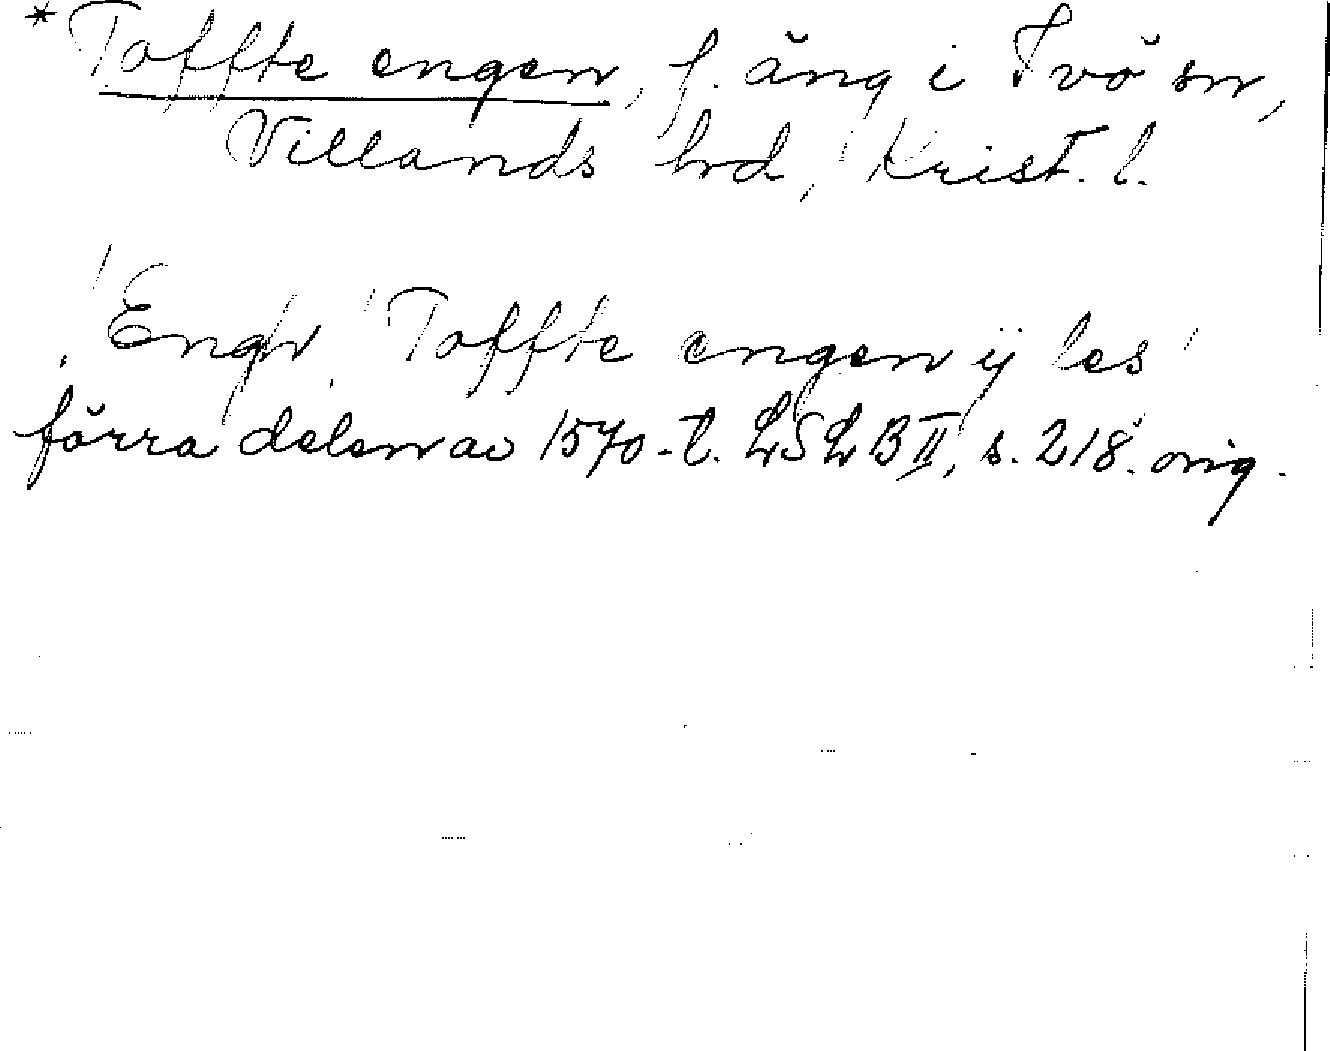 * Toffte engen, f. äng i Ivö sn,
Villands hrd, Krist. l.
"Engh Toffte engen ij les"
förra delen av 1570-t. LSLB II, s. 218. orig.